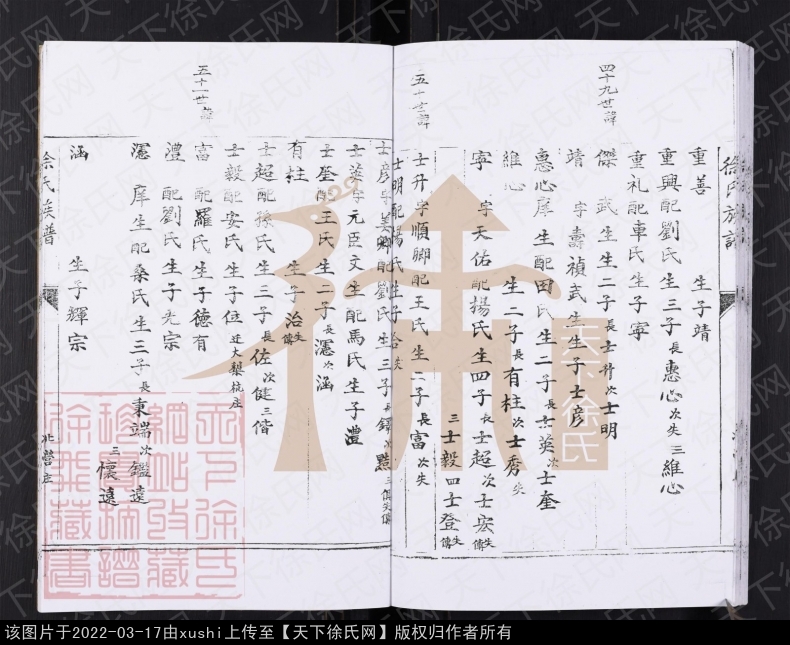 徐氏族譜
四十九世諱
重善 生子靖
重興配劉氏生三子長惠心次失三維心
重礼配車氏生子寧
傑 武生生二子長士升次士明
靖 字壽禎武生生子士彥
惠心庠生配田氏生二子長士英次士奎
維心 生二子長有柱次士秀失
寧 字天佑配楊氏生四子長士超次士宏失傳
三士毅四士登失傳
五十世諱
士升字順卿配王氏生二子長富次失
士明配楊氏生子
士彥字美卿配劉氏生三子長鐸次點三
士英字元臣文生配馬氏生子澧
士奎配王氏生二子長濹次涵
有柱 生子治失傳
士超配孫氏生二子長佐次健三偕
士毅配安氏生子位迁大黎杭庄
五十一世諱
富 配羅氏生子德有
澧 配劉氏生子光宗
濹 庠生配桑氏生三子長東端次鑑遠
三懷遠
涵 生子輝宗
北營庄
徐氏族譜
天下徐氏
天下徐氏網站收藏珍藏譜徐飛藏書
天下徐氏网
该图片于2022-03-17由xushi上传至【天下徐氏网】版权归作者所有